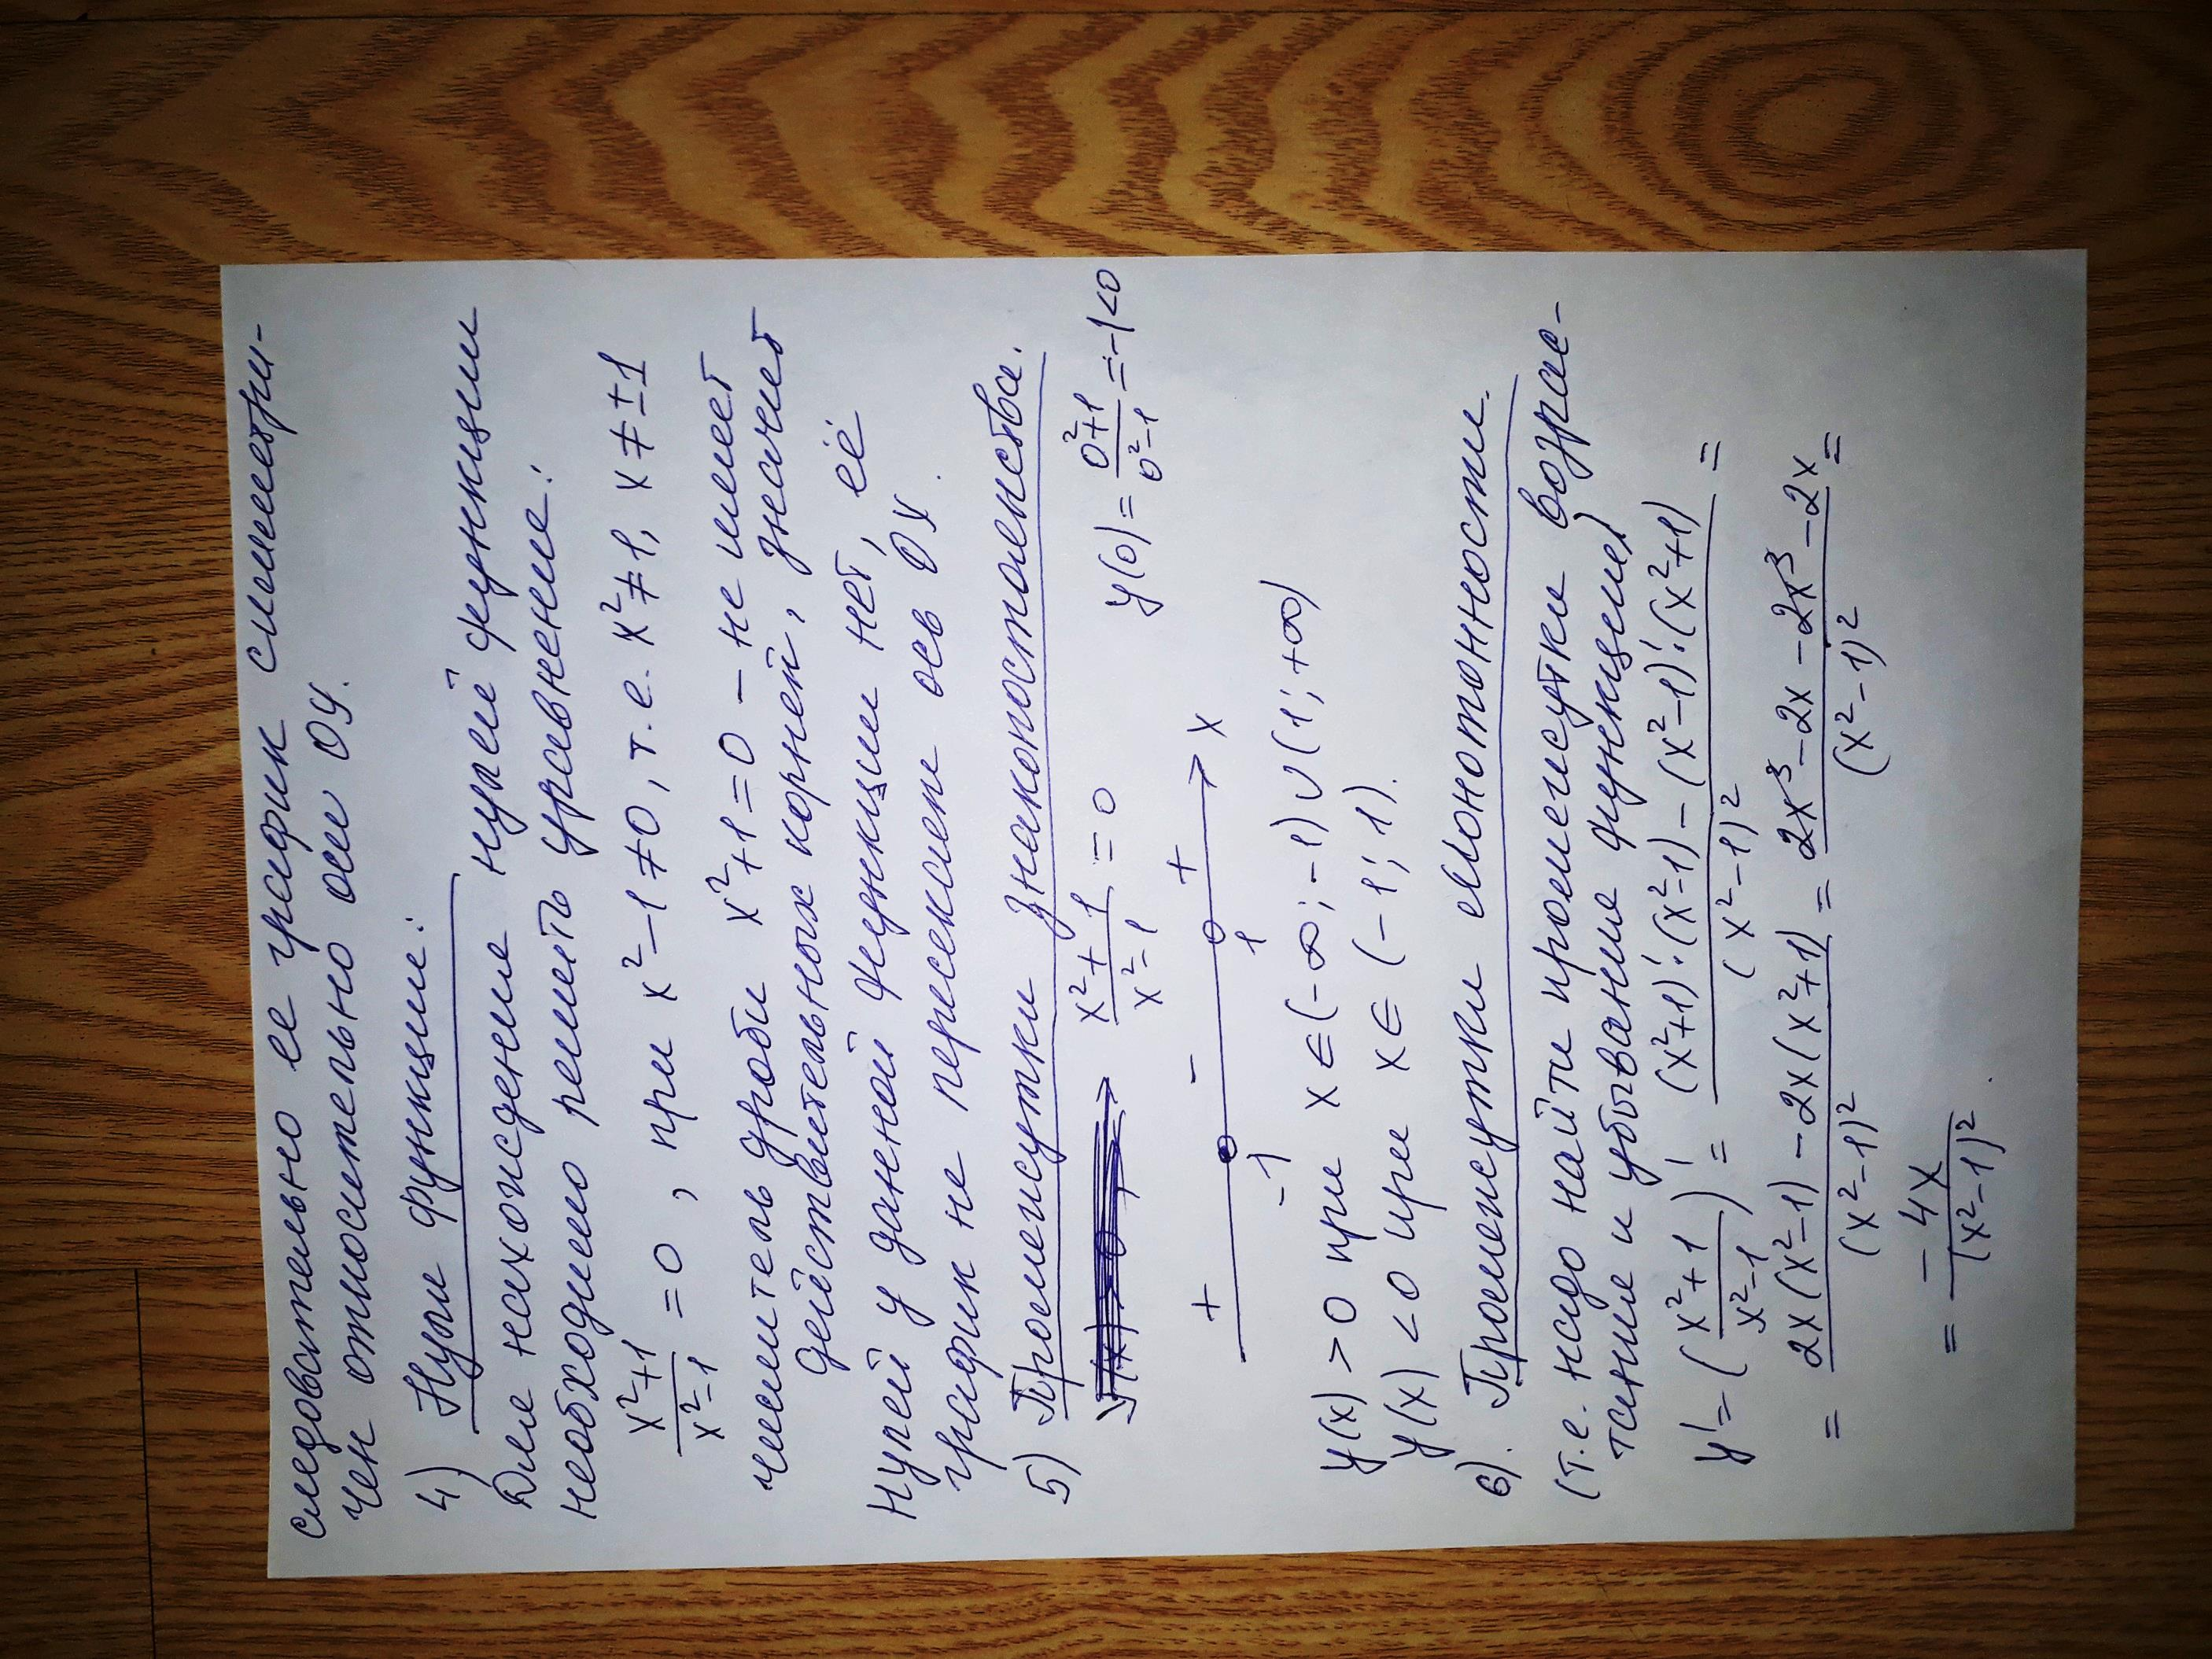 следовательно ее график симметри-
чен относительно оси OY.
4) Нули функции:
Для нахождения нулей функции
необходимо решить уравнение:
(x²+1)/(x²-1) = 0, при x²-1≠0, т.е. x²≠1, x≠±1
числитель дроби x²+1=0 – не имеет
действительных корней, значит
нулей у данной функции нет, её
график не пересекает ось OX.
5) Промежутки знакопостоянства.
(x²+1)/(x²-1) = 0 y(0) = (0²+1)/(0²-1) = -1<0
+ - +
-1 1 x
y(x) > 0 при x∈(-∞; -1)∪(1; +∞)
y(x) < 0 при x∈(-1; 1).
6). Промежутки монотонности.
(т.е. надо найти промежутки возрас-
тания и убывание функции)
y' = ((x²+1)/(x²-1))' = ((x²+1)'·(x²-1) - (x²-1)'·(x²+1))/(x²-1)² =
= (2x(x²-1) - 2x(x²+1))/(x²-1)² = (2x³-2x-2x³-2x)/(x²-1)² =
= - 4x/(x²-1)².